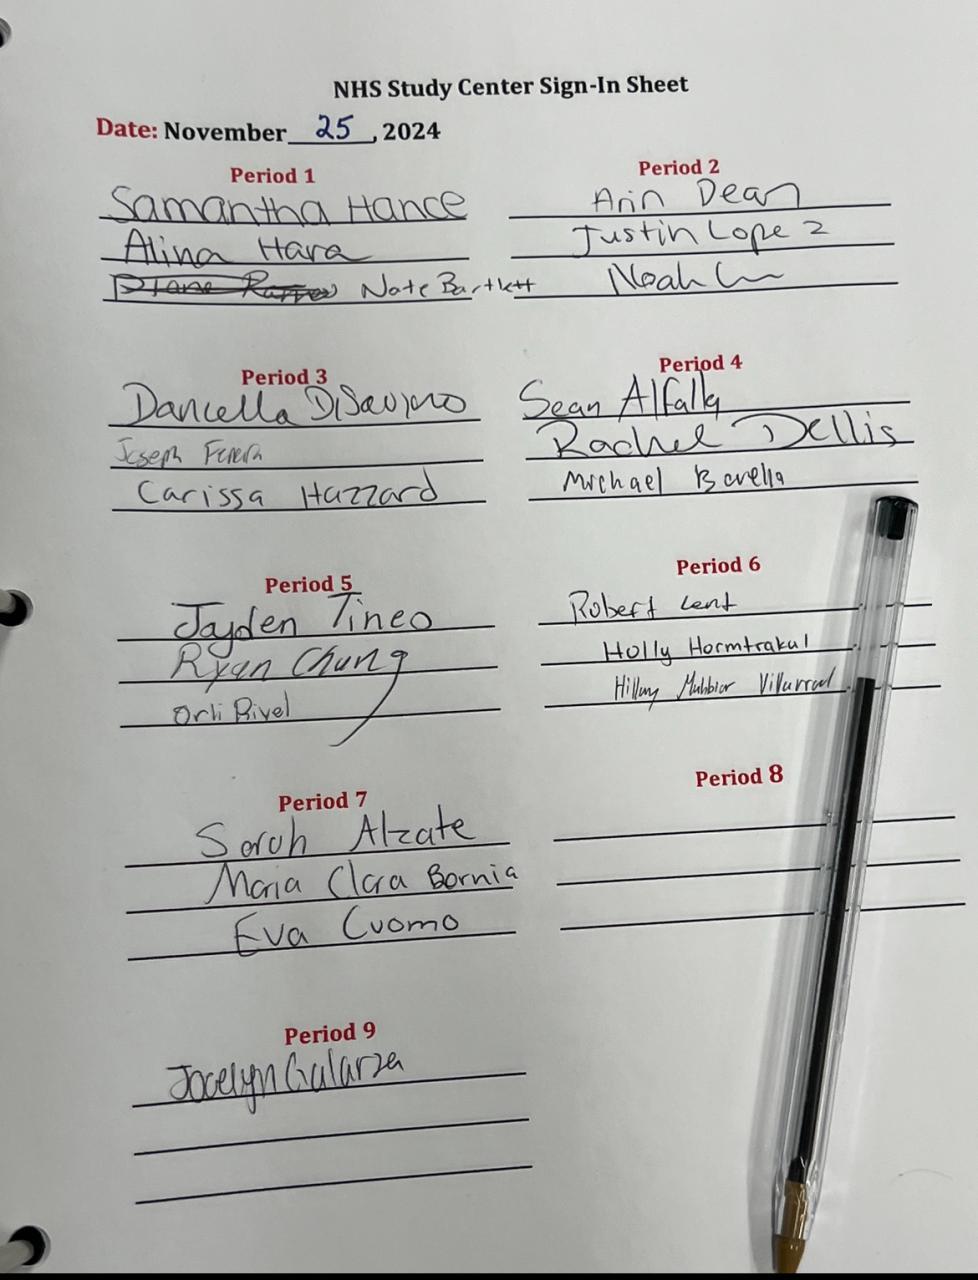 NHS Study Center Sign-In Sheet
Date: November 25, 2024
Period 1
Samantha Hance
Alina Hara
Nate Bartlett
Period 2
Arin Dean
Justin Lopez
Noah
Period 3
Daniella DiSavino
Joseph
Carissa Hazzard
Period 4
Sean Alfalla
Rachel Dellis
Michael Borella
Period 5
Jayden Tineo
Ryan Chung
Orli Rivel
Period 6
Robert Lent
Holly Hormtrakul
Hillary
Period 7
Sarah Alzate
Maria Clara Bornia
Eva Cuomo
Period 8
Period 9
Jocelyn Galarza